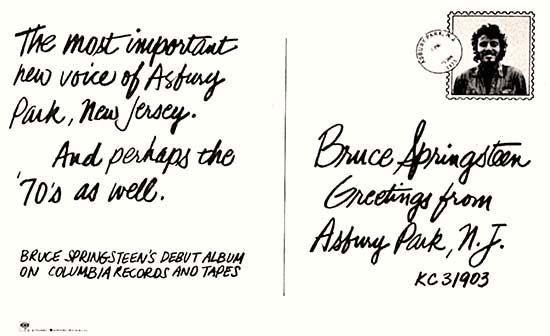 The most important
new voice of Asbury
Park, New Jersey.
And perhaps the
'70's as well.
BRUCE SPRINGSTEEN'S DEBUT ALBUM
ON COLUMBIA RECORDS AND TAPES
ASBURY PARK, N.J.
Bruce Springsteen
Greetings from
Asbury Park, N.J.
KC 31903